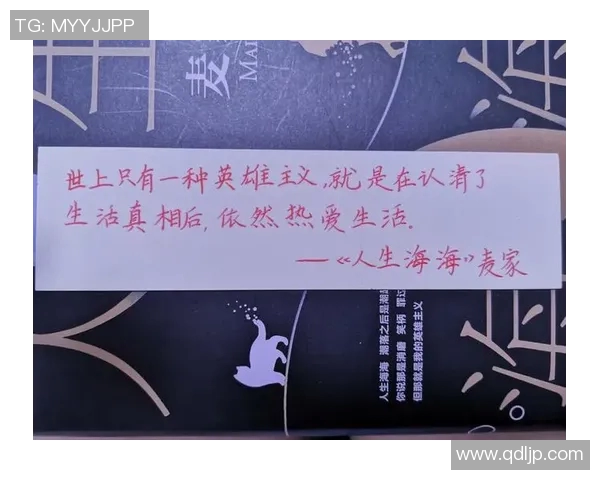 TG: MYYJJPP
麦
MAI
海
世上只有一种英雄主义,就是在认清了
生活真相后,依然热爱生活.
——《人生海海》麦家
人生海海 潮落之后是潮起
你说那是消磨 笑柄 罪过
但那就是我的英雄主义
海
www.qdljp.com